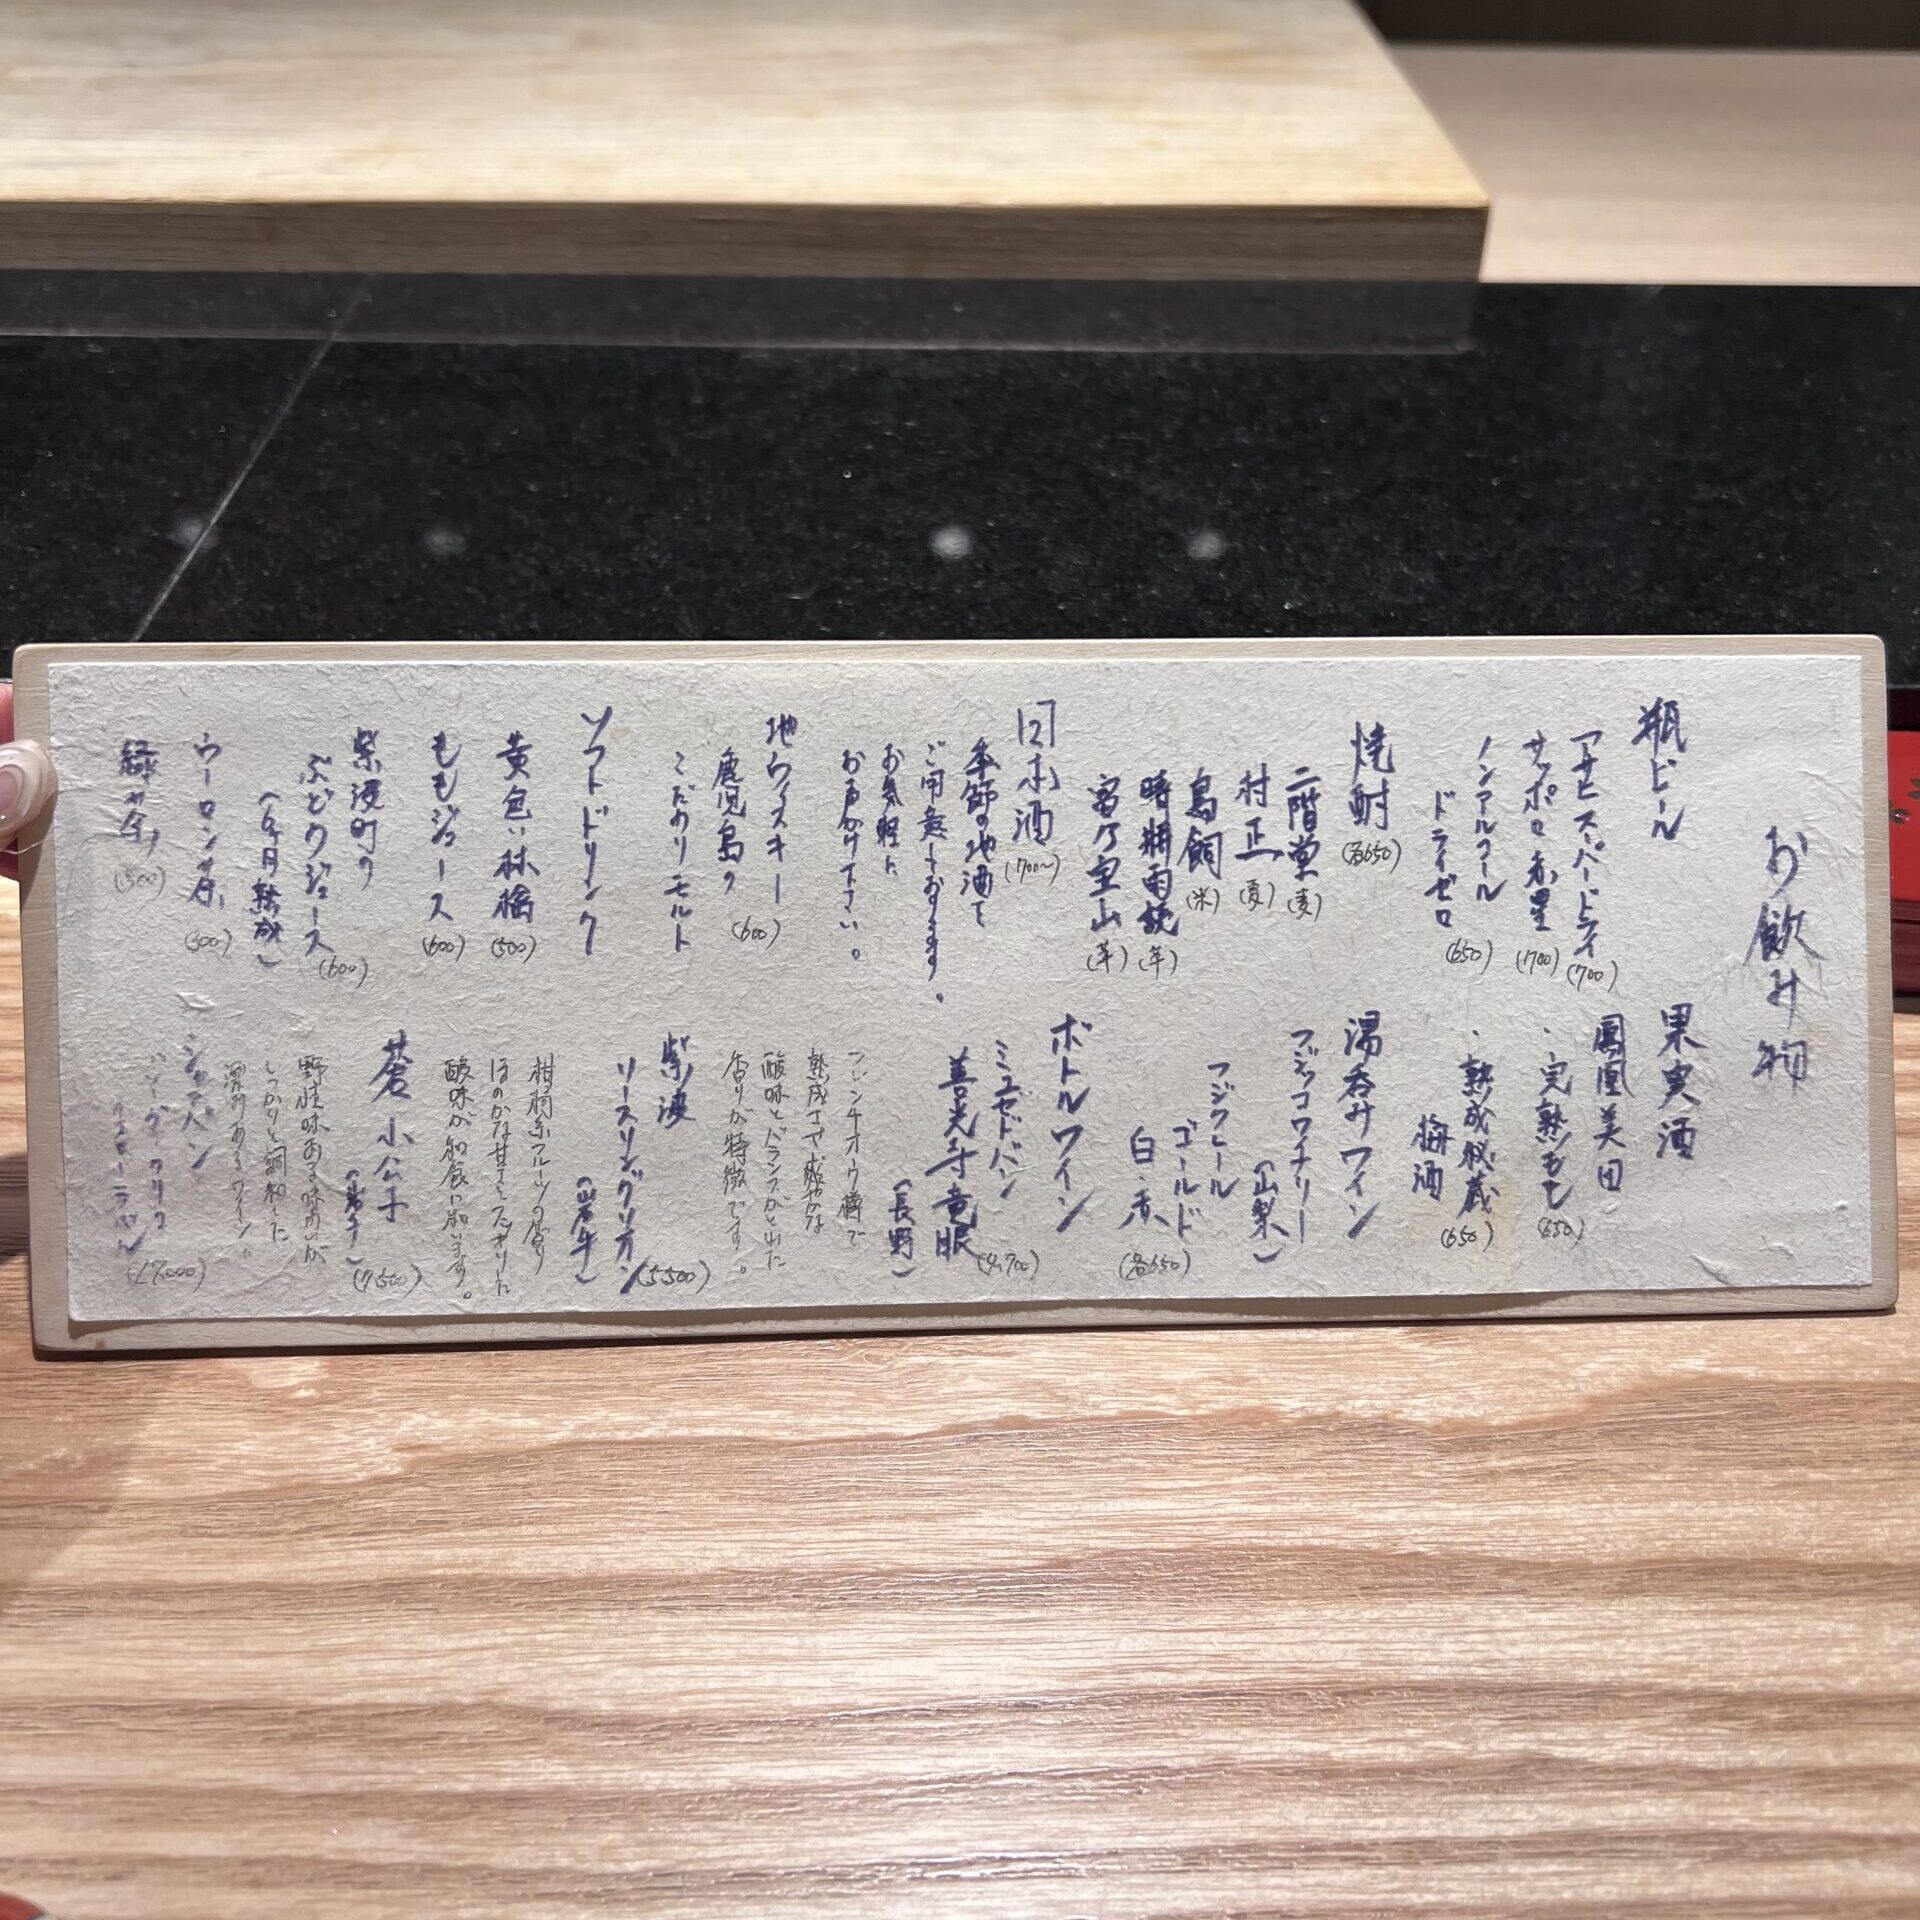 お飲み物
瓶ビール
アサヒスーパードライ
(700)
サッポロ赤星
(700)
ノンアルコール
ドライゼロ
(650)
焼酎
(各650)
二階堂
(麦)
村正
(麦)
鳥飼
(米)
時耕雨読
(芋)
富乃宝山
(芋)
日本酒
(700〜)
季節の地酒を
ご用意しております。
お気軽に
お声がけ下さい。
地ウィスキー
(600)
鹿児島の
こだわりモルト
ソフトドリンク
黄色い林檎
(500)
ももジュース
(600)
紫波町の
ぶどうジュース
(600)
(6ヶ月熟成)
ウーロン茶
(500)
緑茶
(500)
果実酒
鳳凰美田
・完熟もも
(650)
・熟成秘蔵
梅酒
(650)
湯呑みワイン
フジッコワイナリー
(山梨)
フジクレール
ゴールド
白・赤
(各650)
ボトルワイン
ミュゼドバン
善光寺竜眼
(4,700)
(長野)
フレンチオーク樽で
熟成させ穏やかな
酸味とバランスがとれた
香りが特徴です。
紫波
リースリングリオン
(5500)
(岩手)
柑橘系フルーツの香り
ほのかな甘さとスッキリした
酸味が和食に合います。
蒼 小公子
(7,500)
(岩手)
野性味ある味わいが
しっかりと調和した
深みあるワイン。
シャンパン
イエローラベル
(17,000)